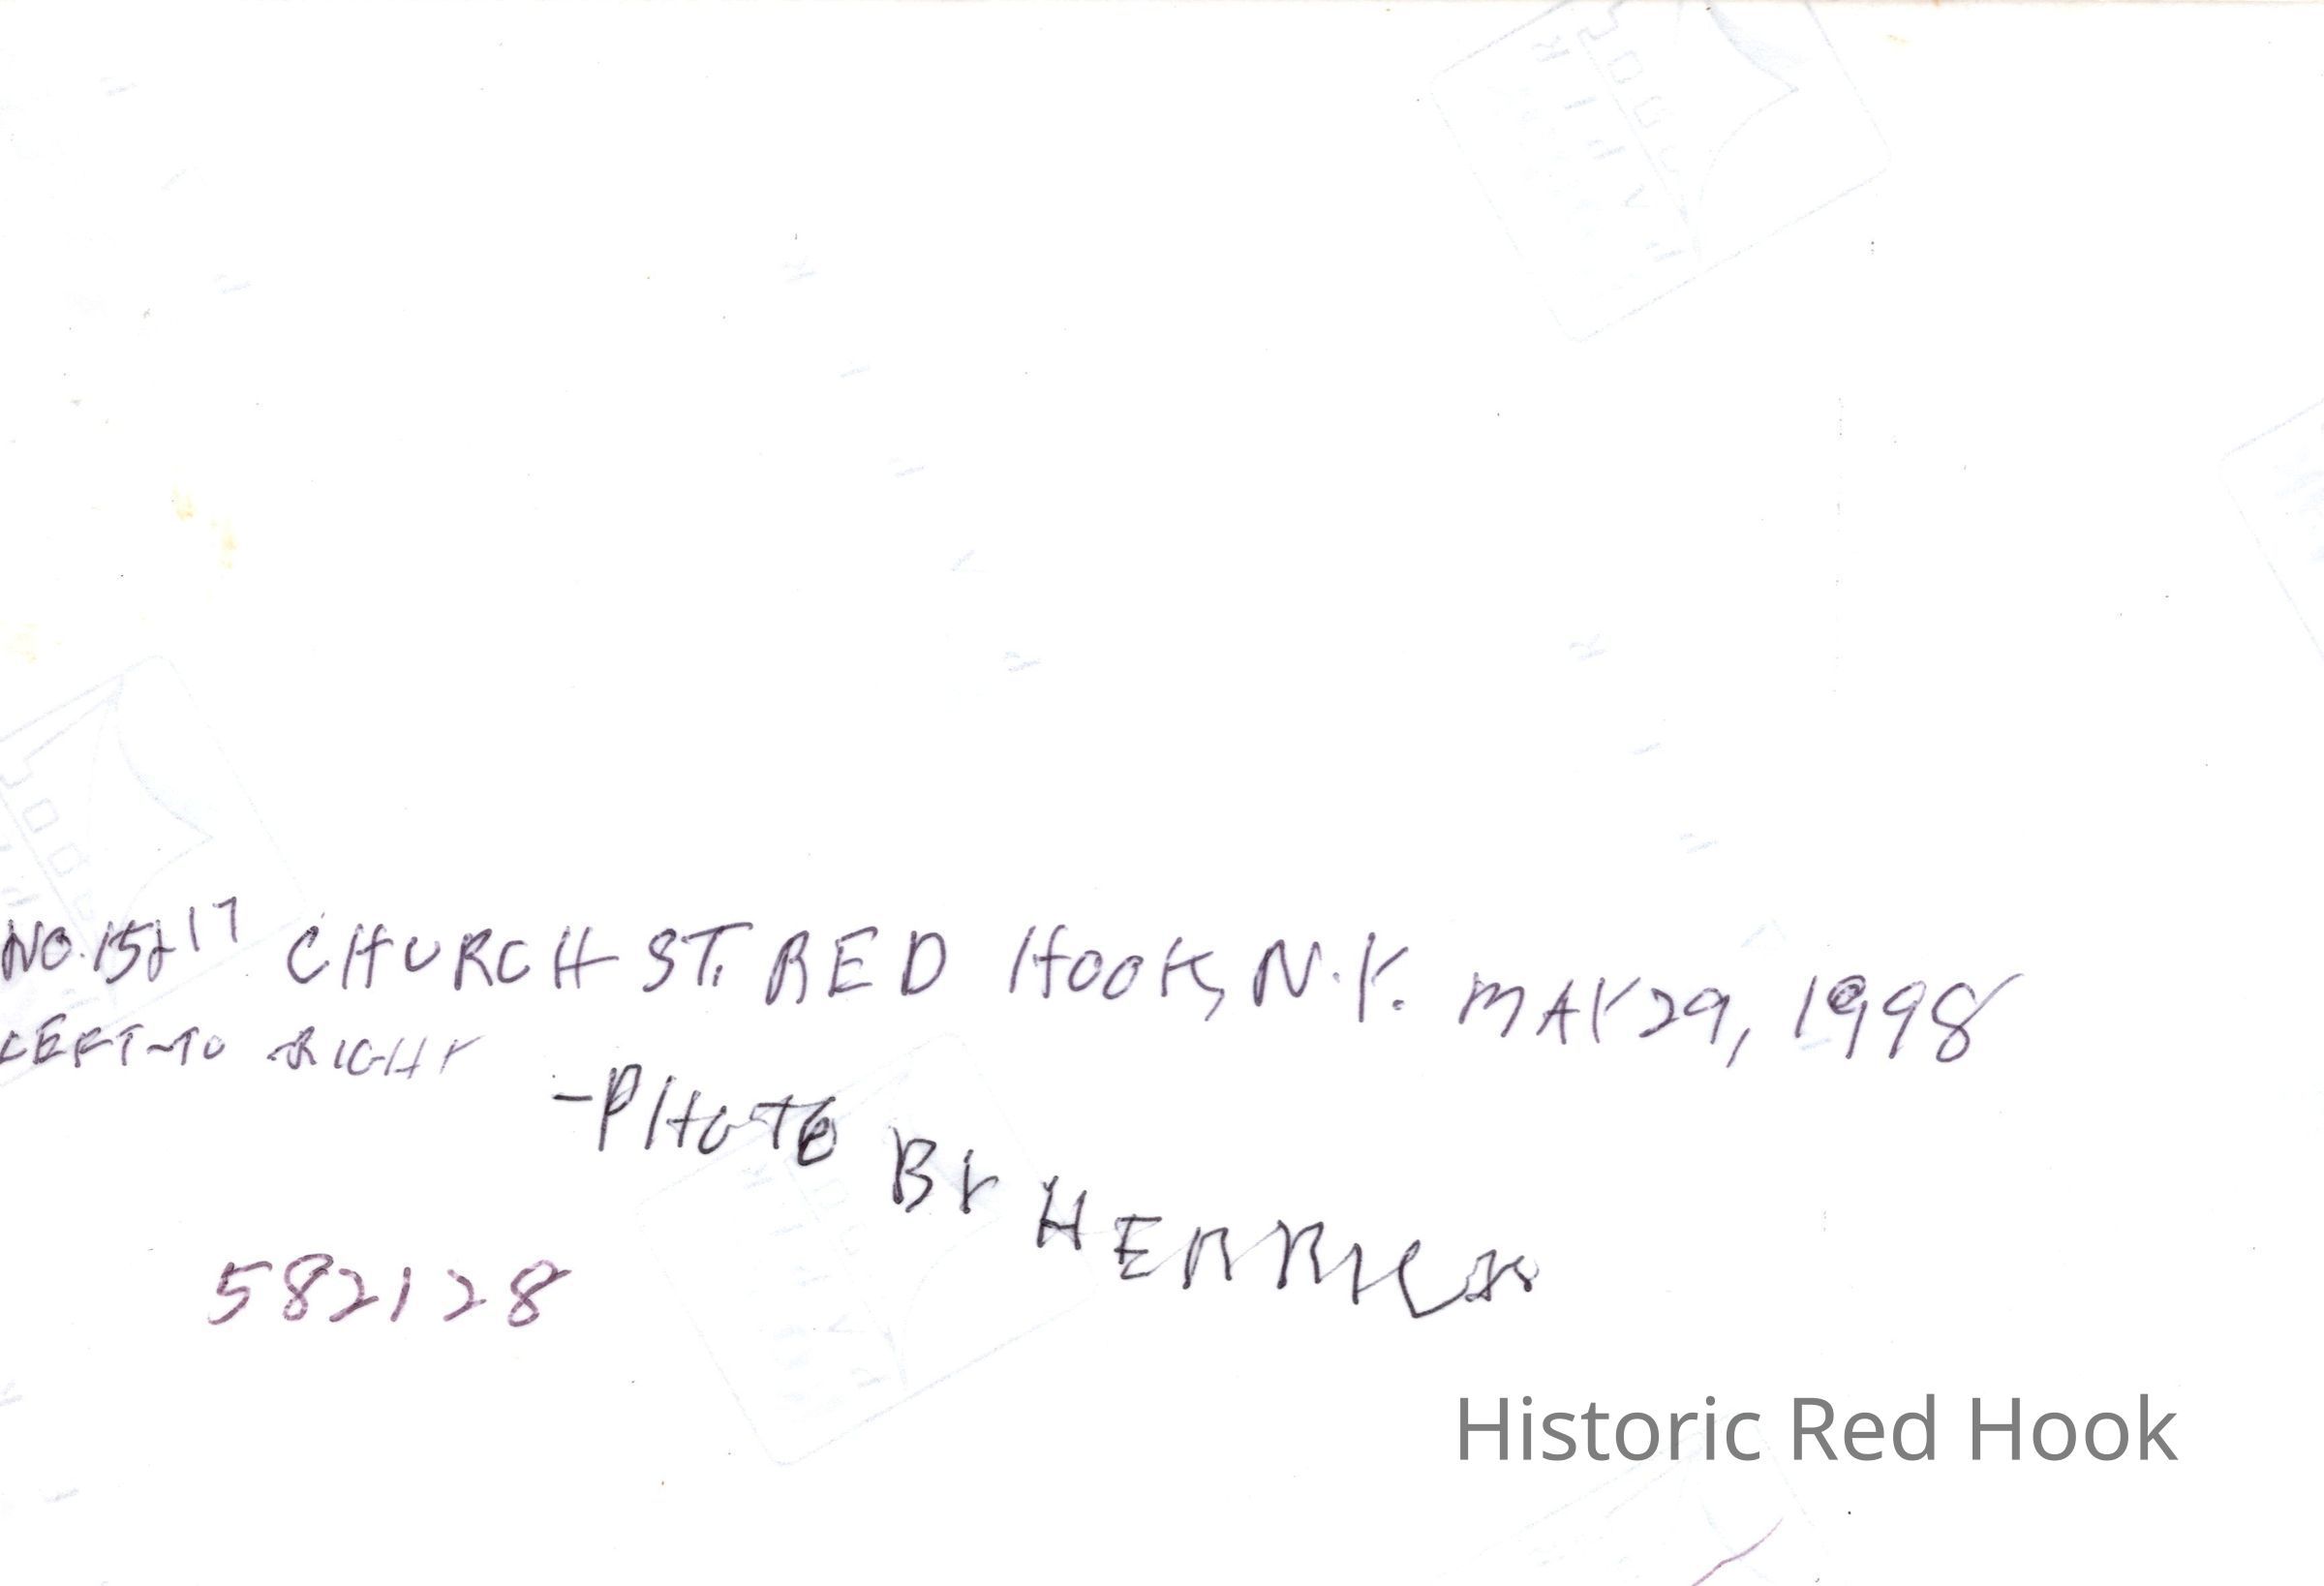 NO. 15 & 17 CHURCH ST. RED HOOK, N.Y. MAY 29, 1998
LEFT TO RIGHT
-PHOTO BY HERRICK
582128
Historic Red Hook